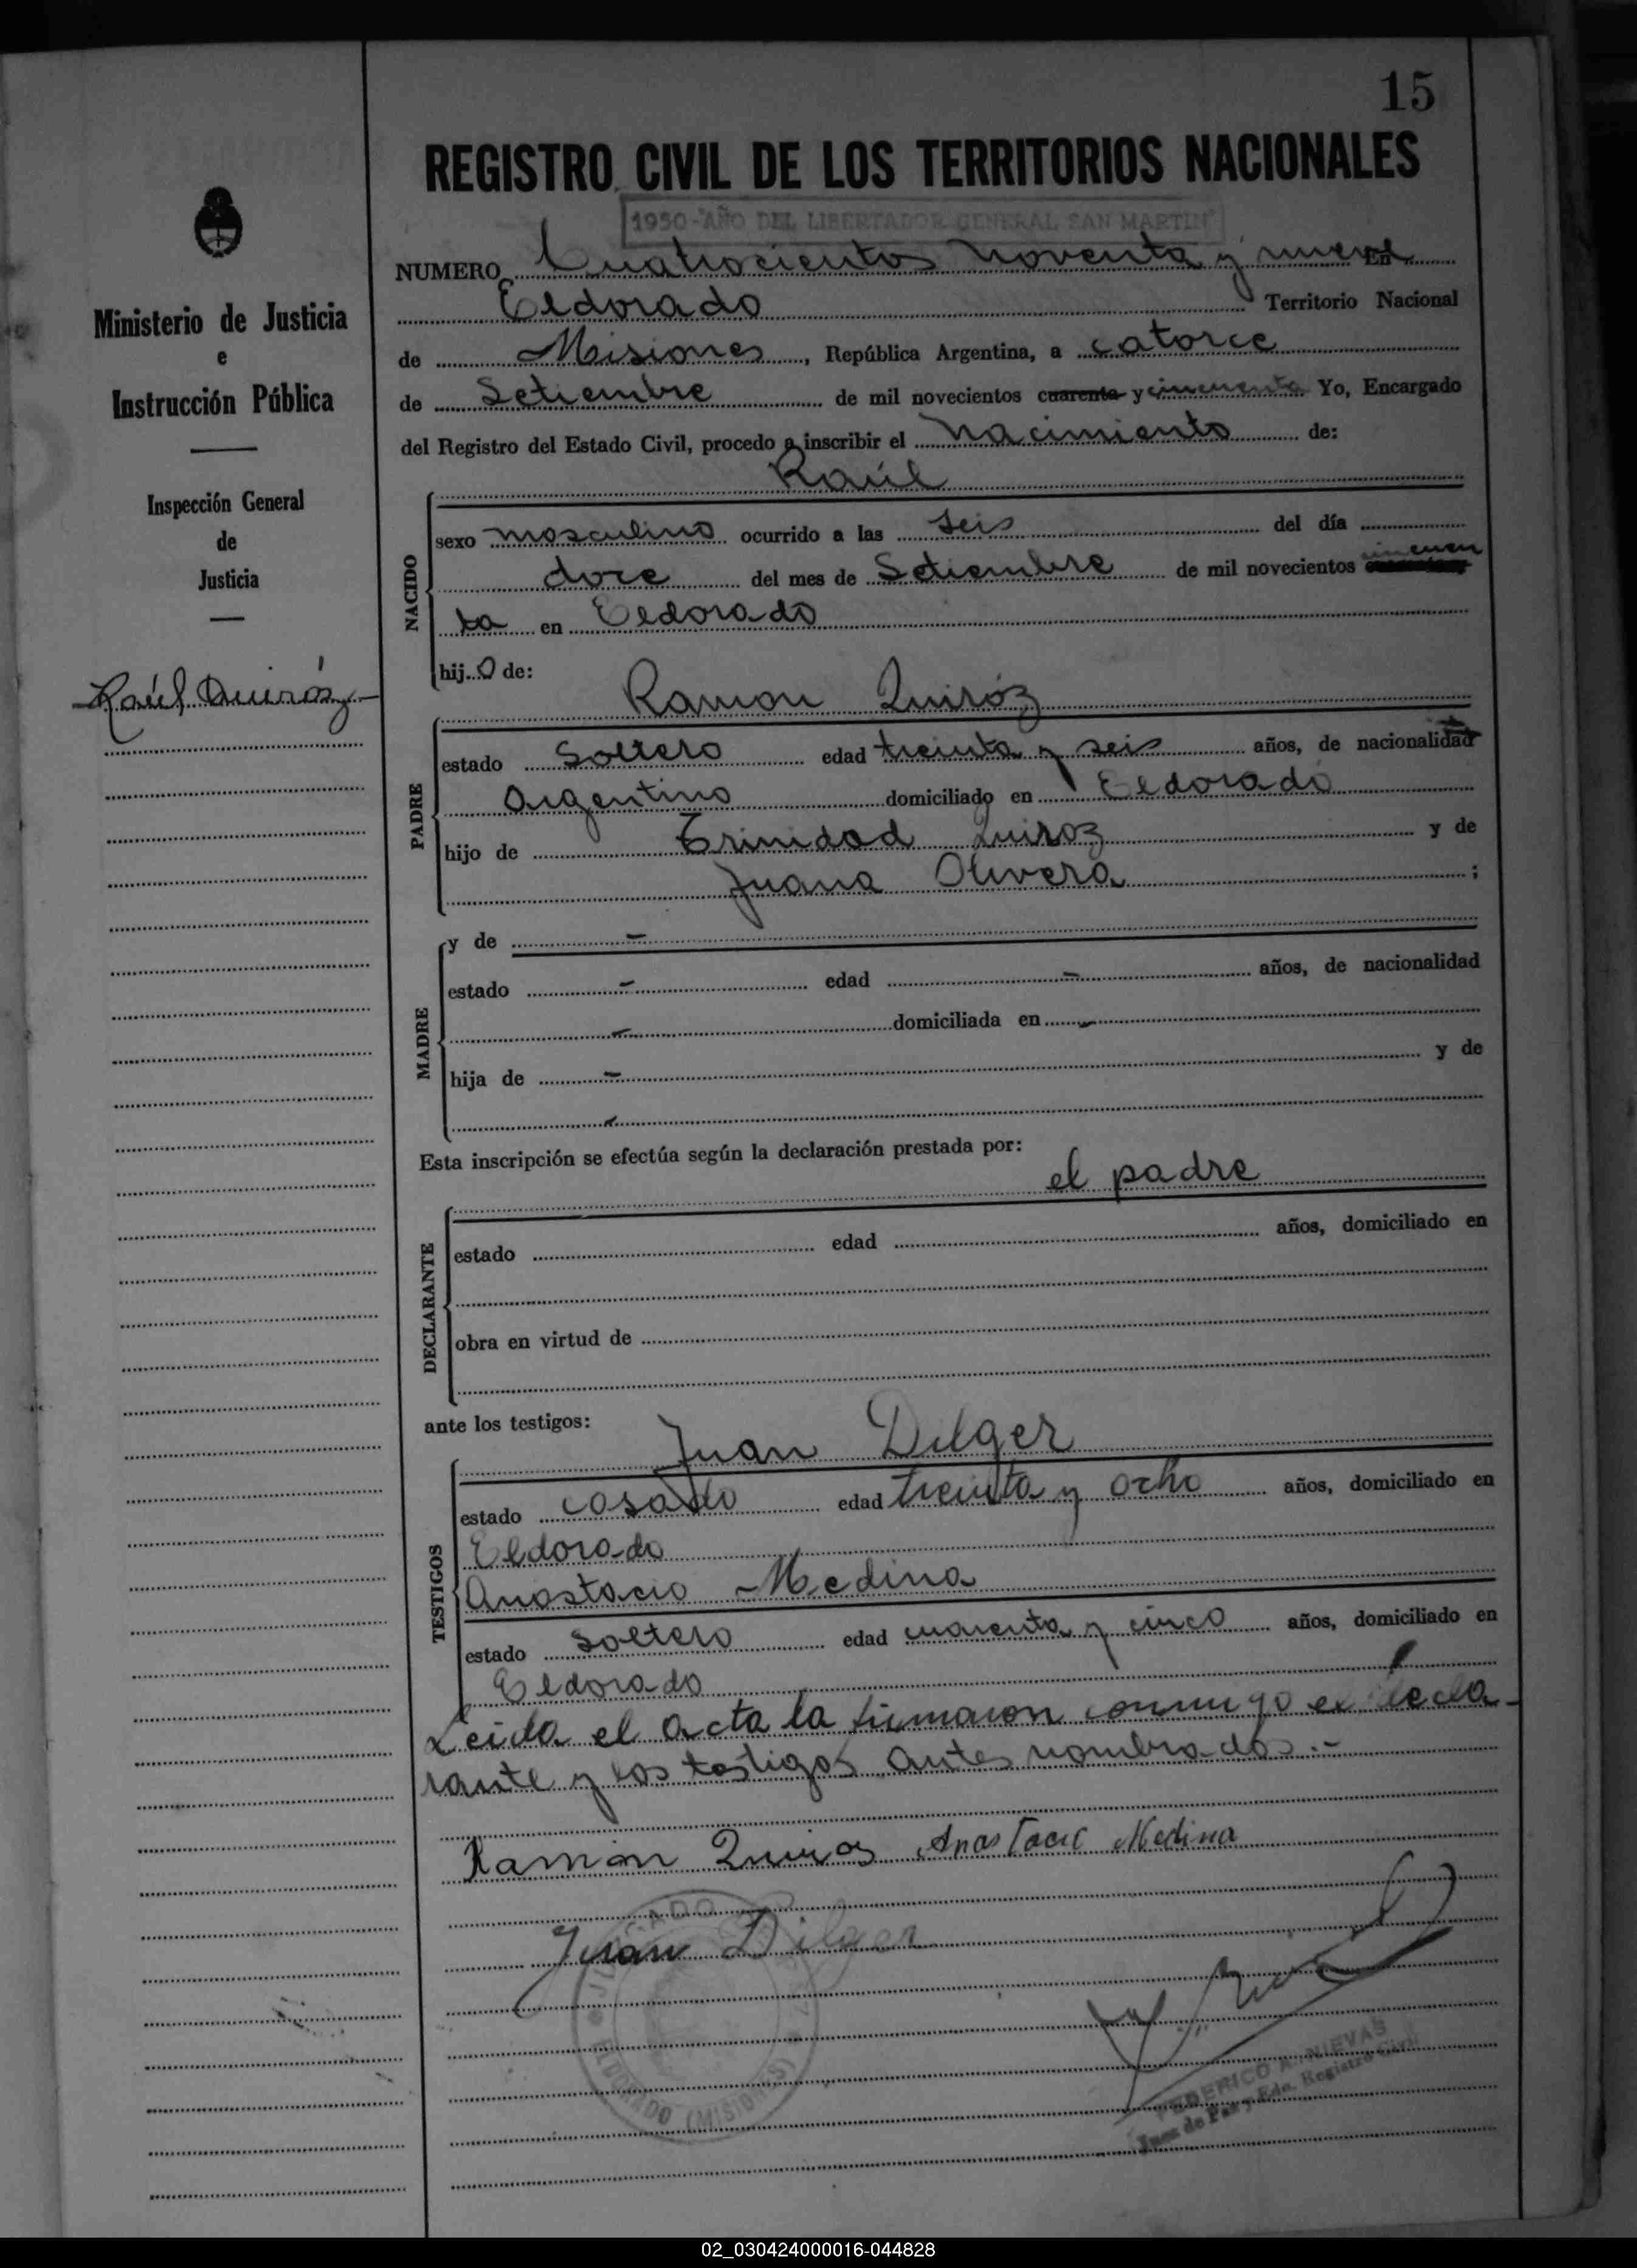 15
REGISTRO CIVIL DE LOS TERRITORIOS NACIONALES
1950-"AÑO DEL LIBERTADOR GENERAL SAN MARTIN"
Ministerio de Justicia
e
Instrucción Pública
Inspección General
de
Justicia
Raúl Quiróz
NUMERO Cuatrocientos noventa y nueve En
Eldorado Territorio Nacional
de Misiones, República Argentina, a catorce
de Setiembre de mil novecientos cuarenta y cincuenta Yo, Encargado
del Registro del Estado Civil, procedo a inscribir el Nacimiento de:
Raúl
NACIDO
sexo masculino ocurrido a las seis del día
doce del mes de Setiembre de mil novecientos cincuen
ta en Eldorado
hijo de:
Ramon Quiróz
PADRE
estado Soltero edad treinta y seis años, de nacionalidad
Argentino domiciliado en Eldorado
hijo de Trinidad Quiroz y de
Juana Olivera ;
MADRE
y de -
estado - edad - años, de nacionalidad
- domiciliada en -
hija de - y de
-
Esta inscripción se efectúa según la declaración prestada por:
el padre
DECLARANTE
estado edad años, domiciliado en
obra en virtud de
ante los testigos:
Juan Dilger
TESTIGOS
estado casado edad treinta y ocho años, domiciliado en
Eldorado
Anastacio Medina
estado soltero edad cuarenta y cinco años, domiciliado en
Eldorado
Leida el acta la firmaron conmigo el decla-
rante y los testigos antes nombrados.-
Ramón Quiroz Anastacio Medina
Juan Dilger
ELDORADO (MISIONES)
FEDERICO A. NIEVAS
Juez de Paz y Edo. Registro Civil
02_030424000016-044828